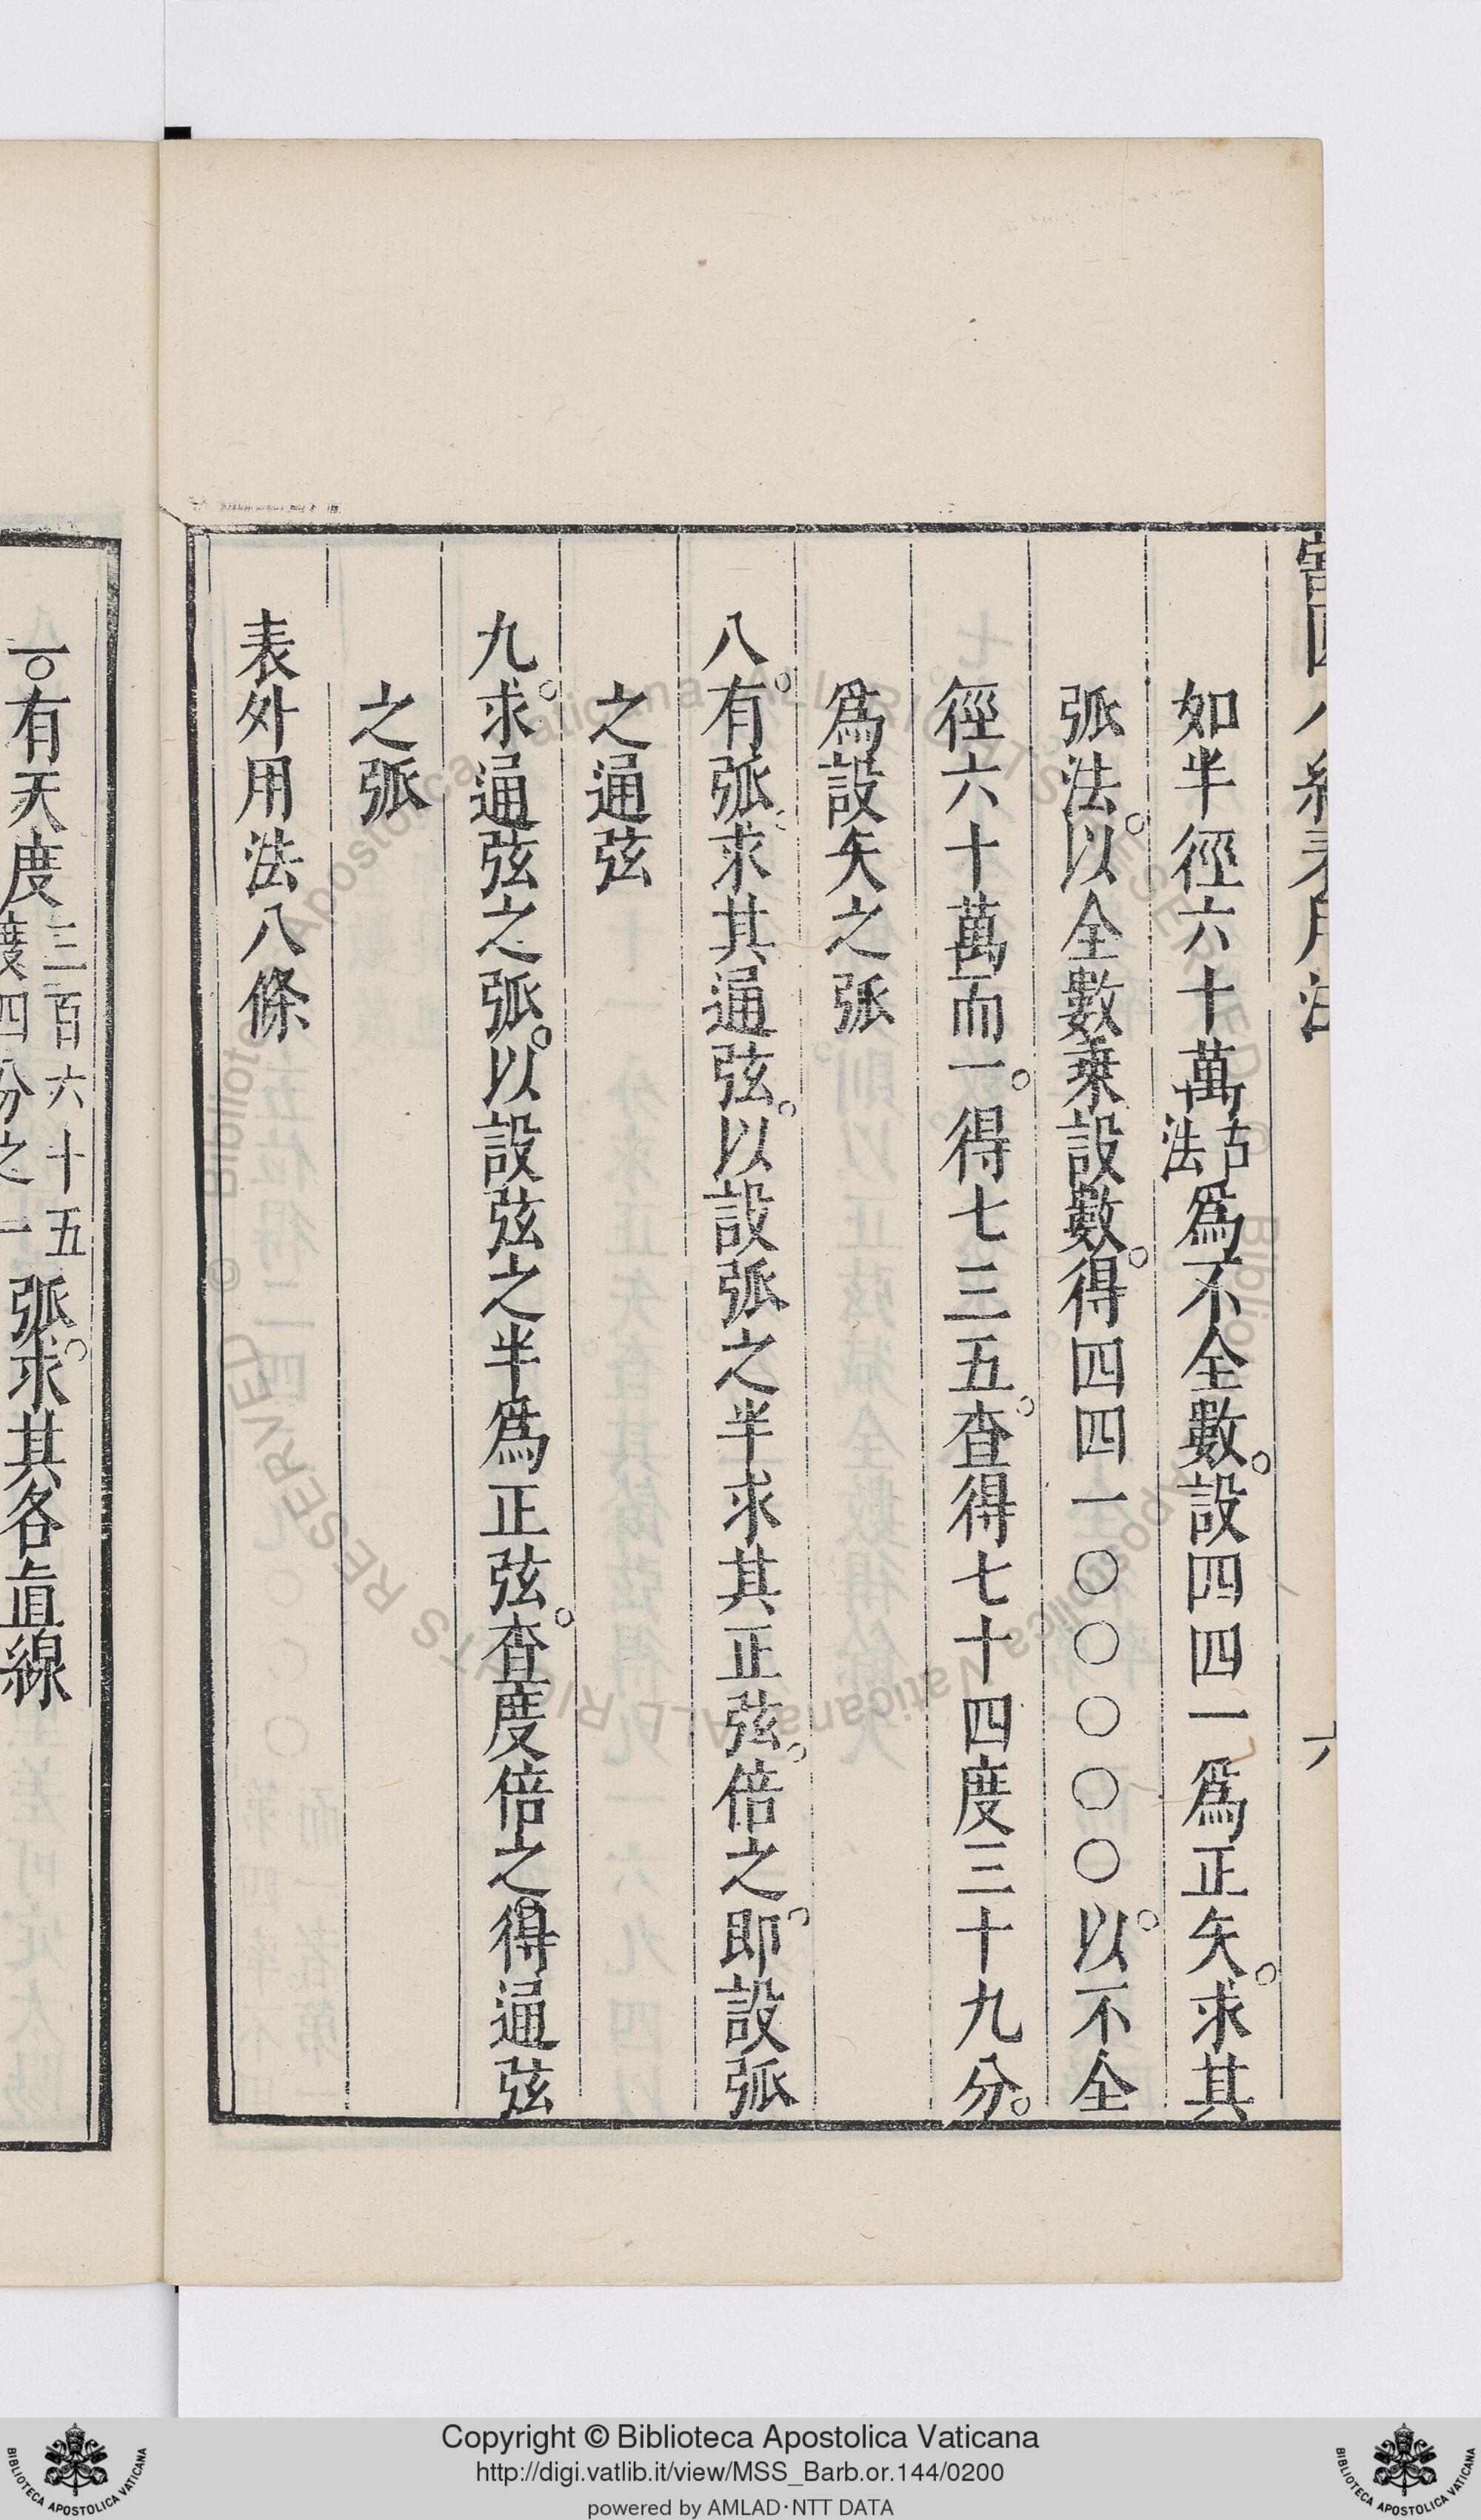 如半徑六十萬古法爲不全數。設四四一爲正矢。求其
弧法。以全數乘設數。得四四一〇〇〇〇〇。以不全
徑六十萬而一。得七三五。查得七十四度三十九分。
爲設矢之弧
八。有弧。求其通弦。以設弧之半求其正弦。倍之。即設弧
之通弦
九。求通弦之弧。以設弦之半爲正弦。查度倍之得通弦
之弧
表外用法八條
一。有天度三百六十五度四分之一弧。求其各直線
六
Copyright © Biblioteca Apostolica Vaticana
http://digi.vatlib.it/view/MSS_Barb.or.144/0200
powered by AMLAD·NTT DATA
BIBLIOTECA APOSTOLICA VATICANA
BIBLIOTECA APOSTOLICA VATICANA